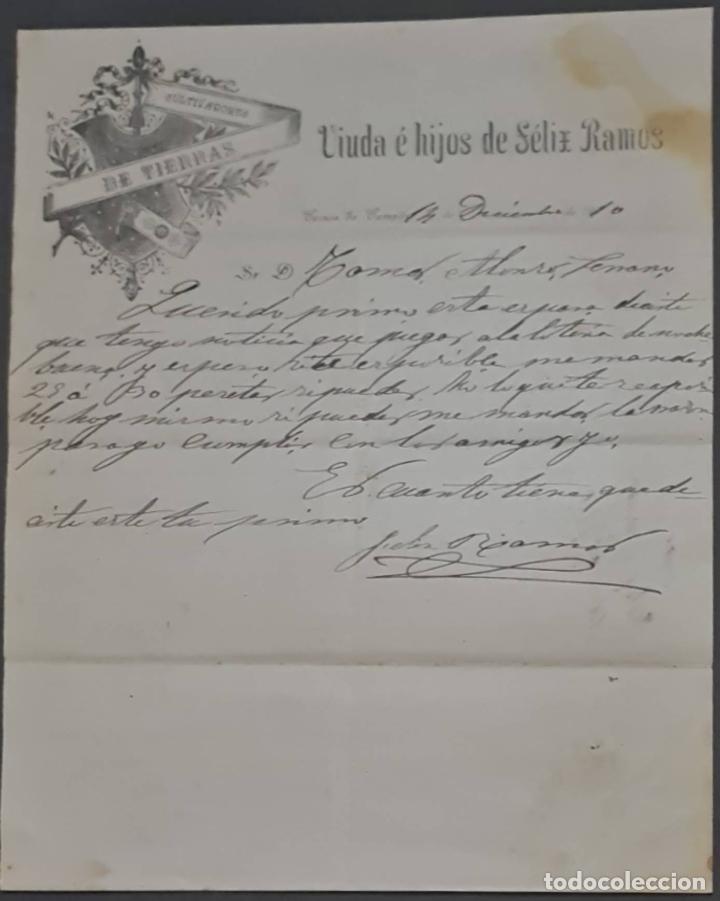 CULTIVADORES
DE TIERRAS
Viuda é hijos de Félix Ramos
14 de Diciembre de 10
Sr. D. Tomas Alonso Serrano
Querido primo esta es para decirte
que tengo noticia que juegas a la loteria de noche
buena, y espero si te es posible me mandes
25 ó 30 pesetas si puedes, lo que te sea posi
ble hoy mismo si puedes me mandas la
para yo cumplir con los amigos yo.
Es cuanto tiene que de-
cirte este tu primo
Felix Ramos
todocoleccion.net